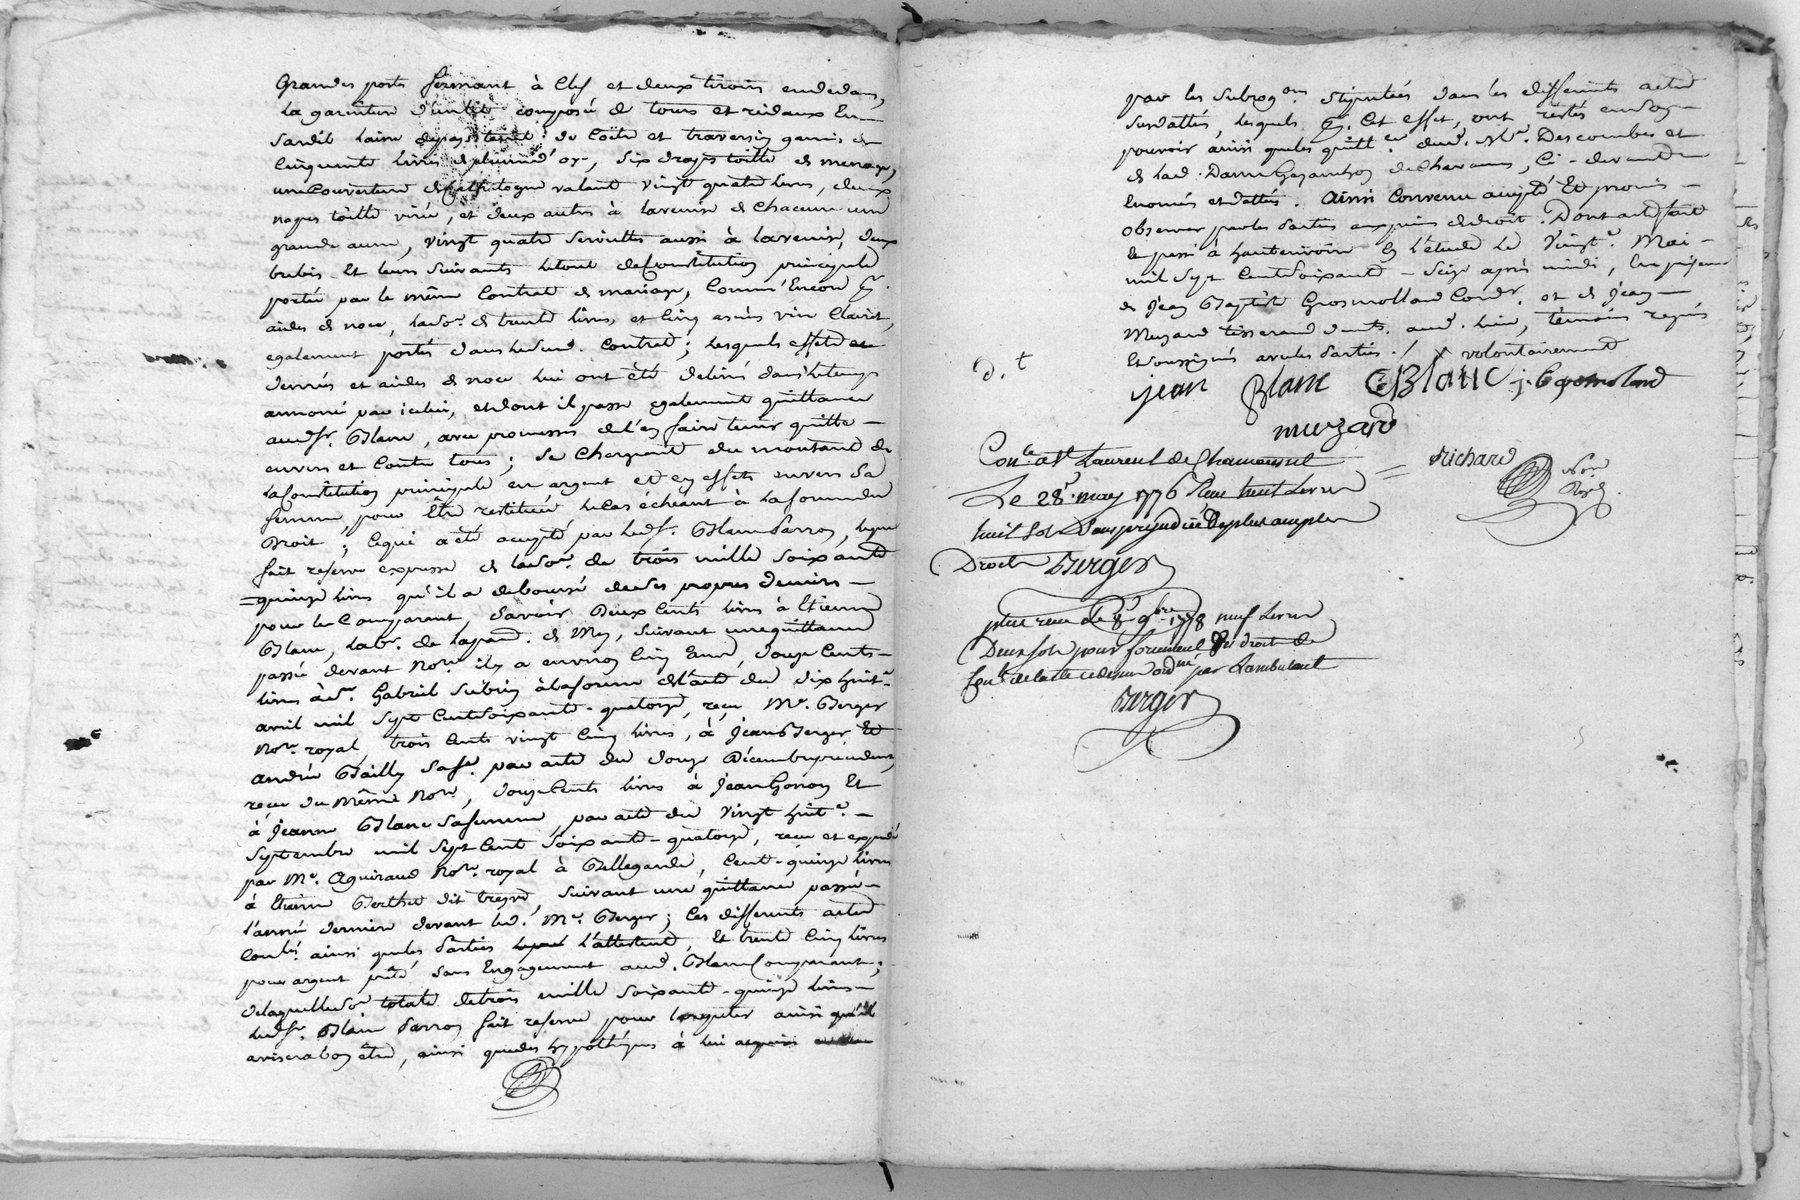 Grandes portes fermant à Clef et deux tiroirs endedans,
La garniture d'un lit composée de tours et rideaux En
Cinquante livres de plume d'oye, six draps toille de menage,
une Couverture de Catalogne valant vingt quatre livres, deux
napes toille virée, et deux autres à lavenise de Chacune une
grande aune, vingt quatre serviettes aussi à lavenise, deux
brebis et leurs suivants le tout de Constitution principale
portée par le même Contrat de mariage, Comm'Encore
aides de noce, laso.e de trente livres et Cinq asnées vin Clairet,
egalement portés dans ledud. Contrat; lesquels effets
denrées et aides de noce lui ont été delivré dans letemps
annoncé par icelui, et dont il passe egalement quittance
aud. sr. Blanc, avec promesses de l'en faire tenir quitte
envers et Contre tous; se Chargeant du montant de
la Constitution principale en argent et en effets envers sa
femme, pour Être restitué le Cas échéant à la forme du
Droit; Cequi a été accepté par led. sr. Blanc Parron, lequel
fait reserve expresse de laso.e de trois mille soixante
quinze livres qu'il a deboursé de ses propres deniers
pour le Comparant, savoir Deux Cents livres à Etienne
Blanc, lab.r de la par. de Mey, suivant une quittance
passée devant No.re il y a environ Cinq Ans, douze Cents
livres à sr. Gabriel Subrin à la forme de l'acte du dix huit.e
avril mil sept Cent soixante-quatorze, reçu Me. Berger
No.re royal, trois Cents vingt Cinq livres, à Jean Berger Et
andrée Bailly sa fe. par acte du douze Décembre precedent,
reçu du Même No.re, douze Cents livres à Jean Gonon Et
à Jeanne Blanc sa femme, par acte du vingt huit.e
Septembre mil sept Cent soixante-quatorze, reçu et expedié
par Me. Aguiraud No.re royal à Bellegarde, Cent-quinze livres
à Etienne Berthet dit treyve, suivant une quittance passée
l'année derniere devant led. Me. Berger; les differents actes
ainsi que les Parties l'attestent, Et trente Cinq livres
pour argent preté sans Engagement aud. Blanc Comparant;
de laquelle so.e totale de trois mille soixante-quinze livres
led. sr. Blanc Parron fait reserve pour le repeter ainsi qu'il
avisera bon être, ainsi que des hypothèques à lui acquises
par les subrog.ons stipulées dans les differents actes
susdattés, lesquels, à Cet effet, ont restés en son
pouvoir ainsi que les quitt.ces dud. Me. Descombes et
de lad. Dame de Chavanes, Ci-devant
Enoncés et dattés. Ainsi Convenu accepté Et promis
observer par les Parties aux peines de droit. Dont acte fait
et passé à hauterivoire En l'étude Le vingt.e Mai
mil Sept Cent soixante-seize après midi, En presence
de Jean Baptiste Grosmolland Cord.r et de Jean
Muzard tisserand dud. lieu, témoins requis
Et soussignés avec les Parties ./. volontairement
d.t
jean Blanc C Blanc
muzard
richard
No.re
Royal.
Con.lé a St Laurent de Chamousset
Le 28e. may 1776 Reçu huit livres
huit sols sans prejudice de plus amples
Droits Berger
plus reçu le 8 9bre 1778 neuf Livres
Deux sols pour suplement des droits de
Berger